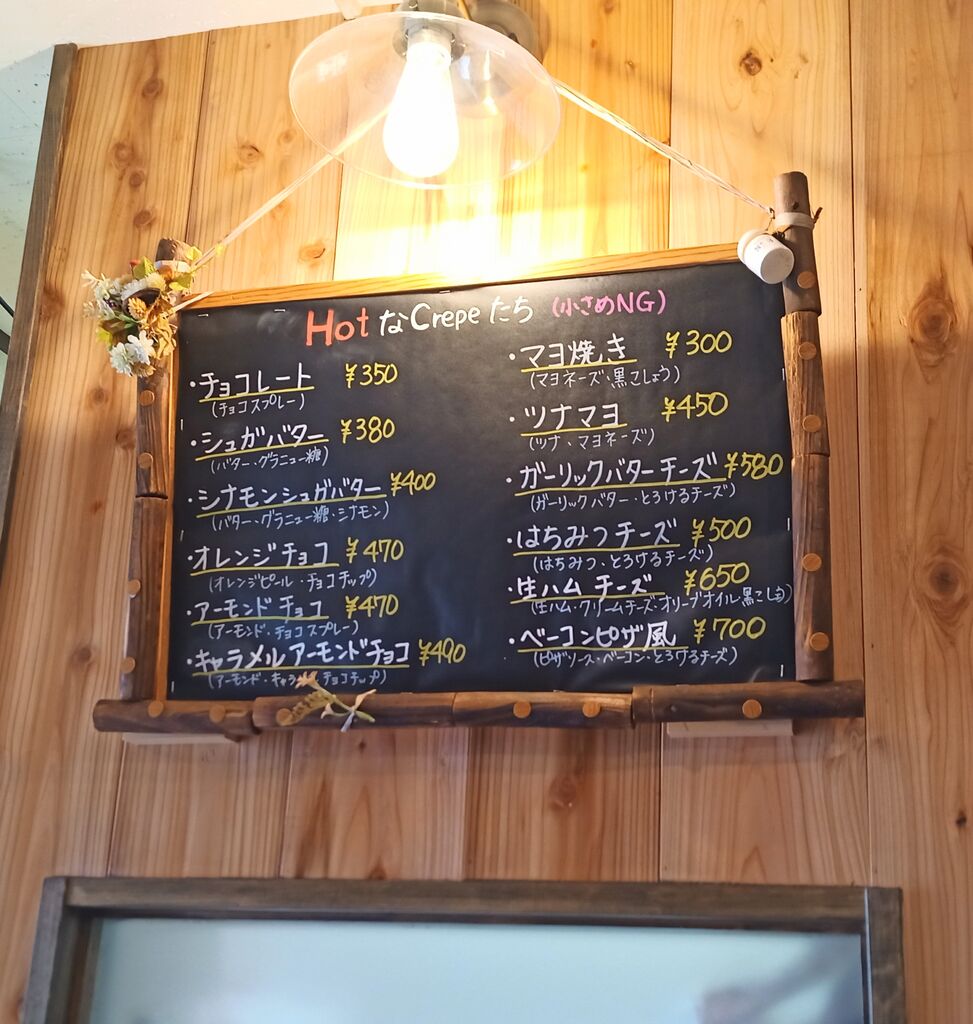 Hot なCrepeたち (小さめNG)
・チョコレート ¥350
(チョコスプレー)
・シュガバター ¥380
(バター・グラニュー糖)
・シナモンシュガバター ¥400
(バター・グラニュー糖・シナモン)
・オレンジチョコ ¥470
(オレンジピール・チョコチップ)
・アーモンドチョコ ¥470
(アーモンド・チョコスプレー)
・キャラメルアーモンドチョコ ¥490
(アーモンド・キャラメル チョコチップ)
・マヨ焼き ¥300
(マヨネーズ・黒こしょう)
・ツナマヨ ¥450
(ツナ、マヨネーズ)
・ガーリックバターチーズ ¥580
(ガーリックバター・とろけるチーズ)
・はちみつチーズ ¥500
(はちみつ、とろけるチーズ)
・生ハムチーズ ¥650
(生ハム・クリームチーズ・オリーブオイル黒こしょう)
・ベーコンピザ風 ¥700
(ピザソース・ベーコン・とろけるチーズ)